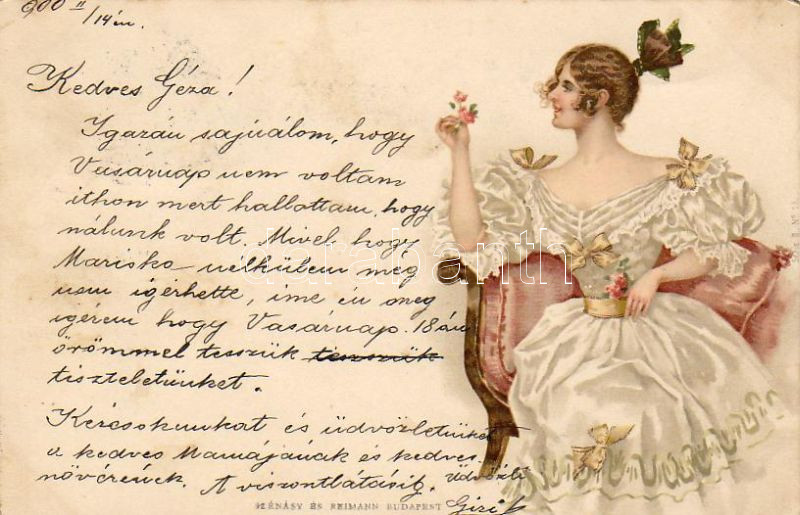 900 II/14én.
Kedves Géza!
Igazán sajnálom, hogy
Vasárnap nem voltam
ithon mert hallottam, hogy
nálunk volt. Mivel hogy
Mariska nélkülem még
nem igérhette, ime én meg
igérem hogy Vasárnap. 18án
örömmel tesszük tesszük
tiszteletünket.
Kézcsókunkat és üdvözletünket
a kedves Mamájának és kedves
növérének. A viszontlátásig. Üdvözli
SZÉNÁSY ÉS REIMANN BUDAPEST
darabanth